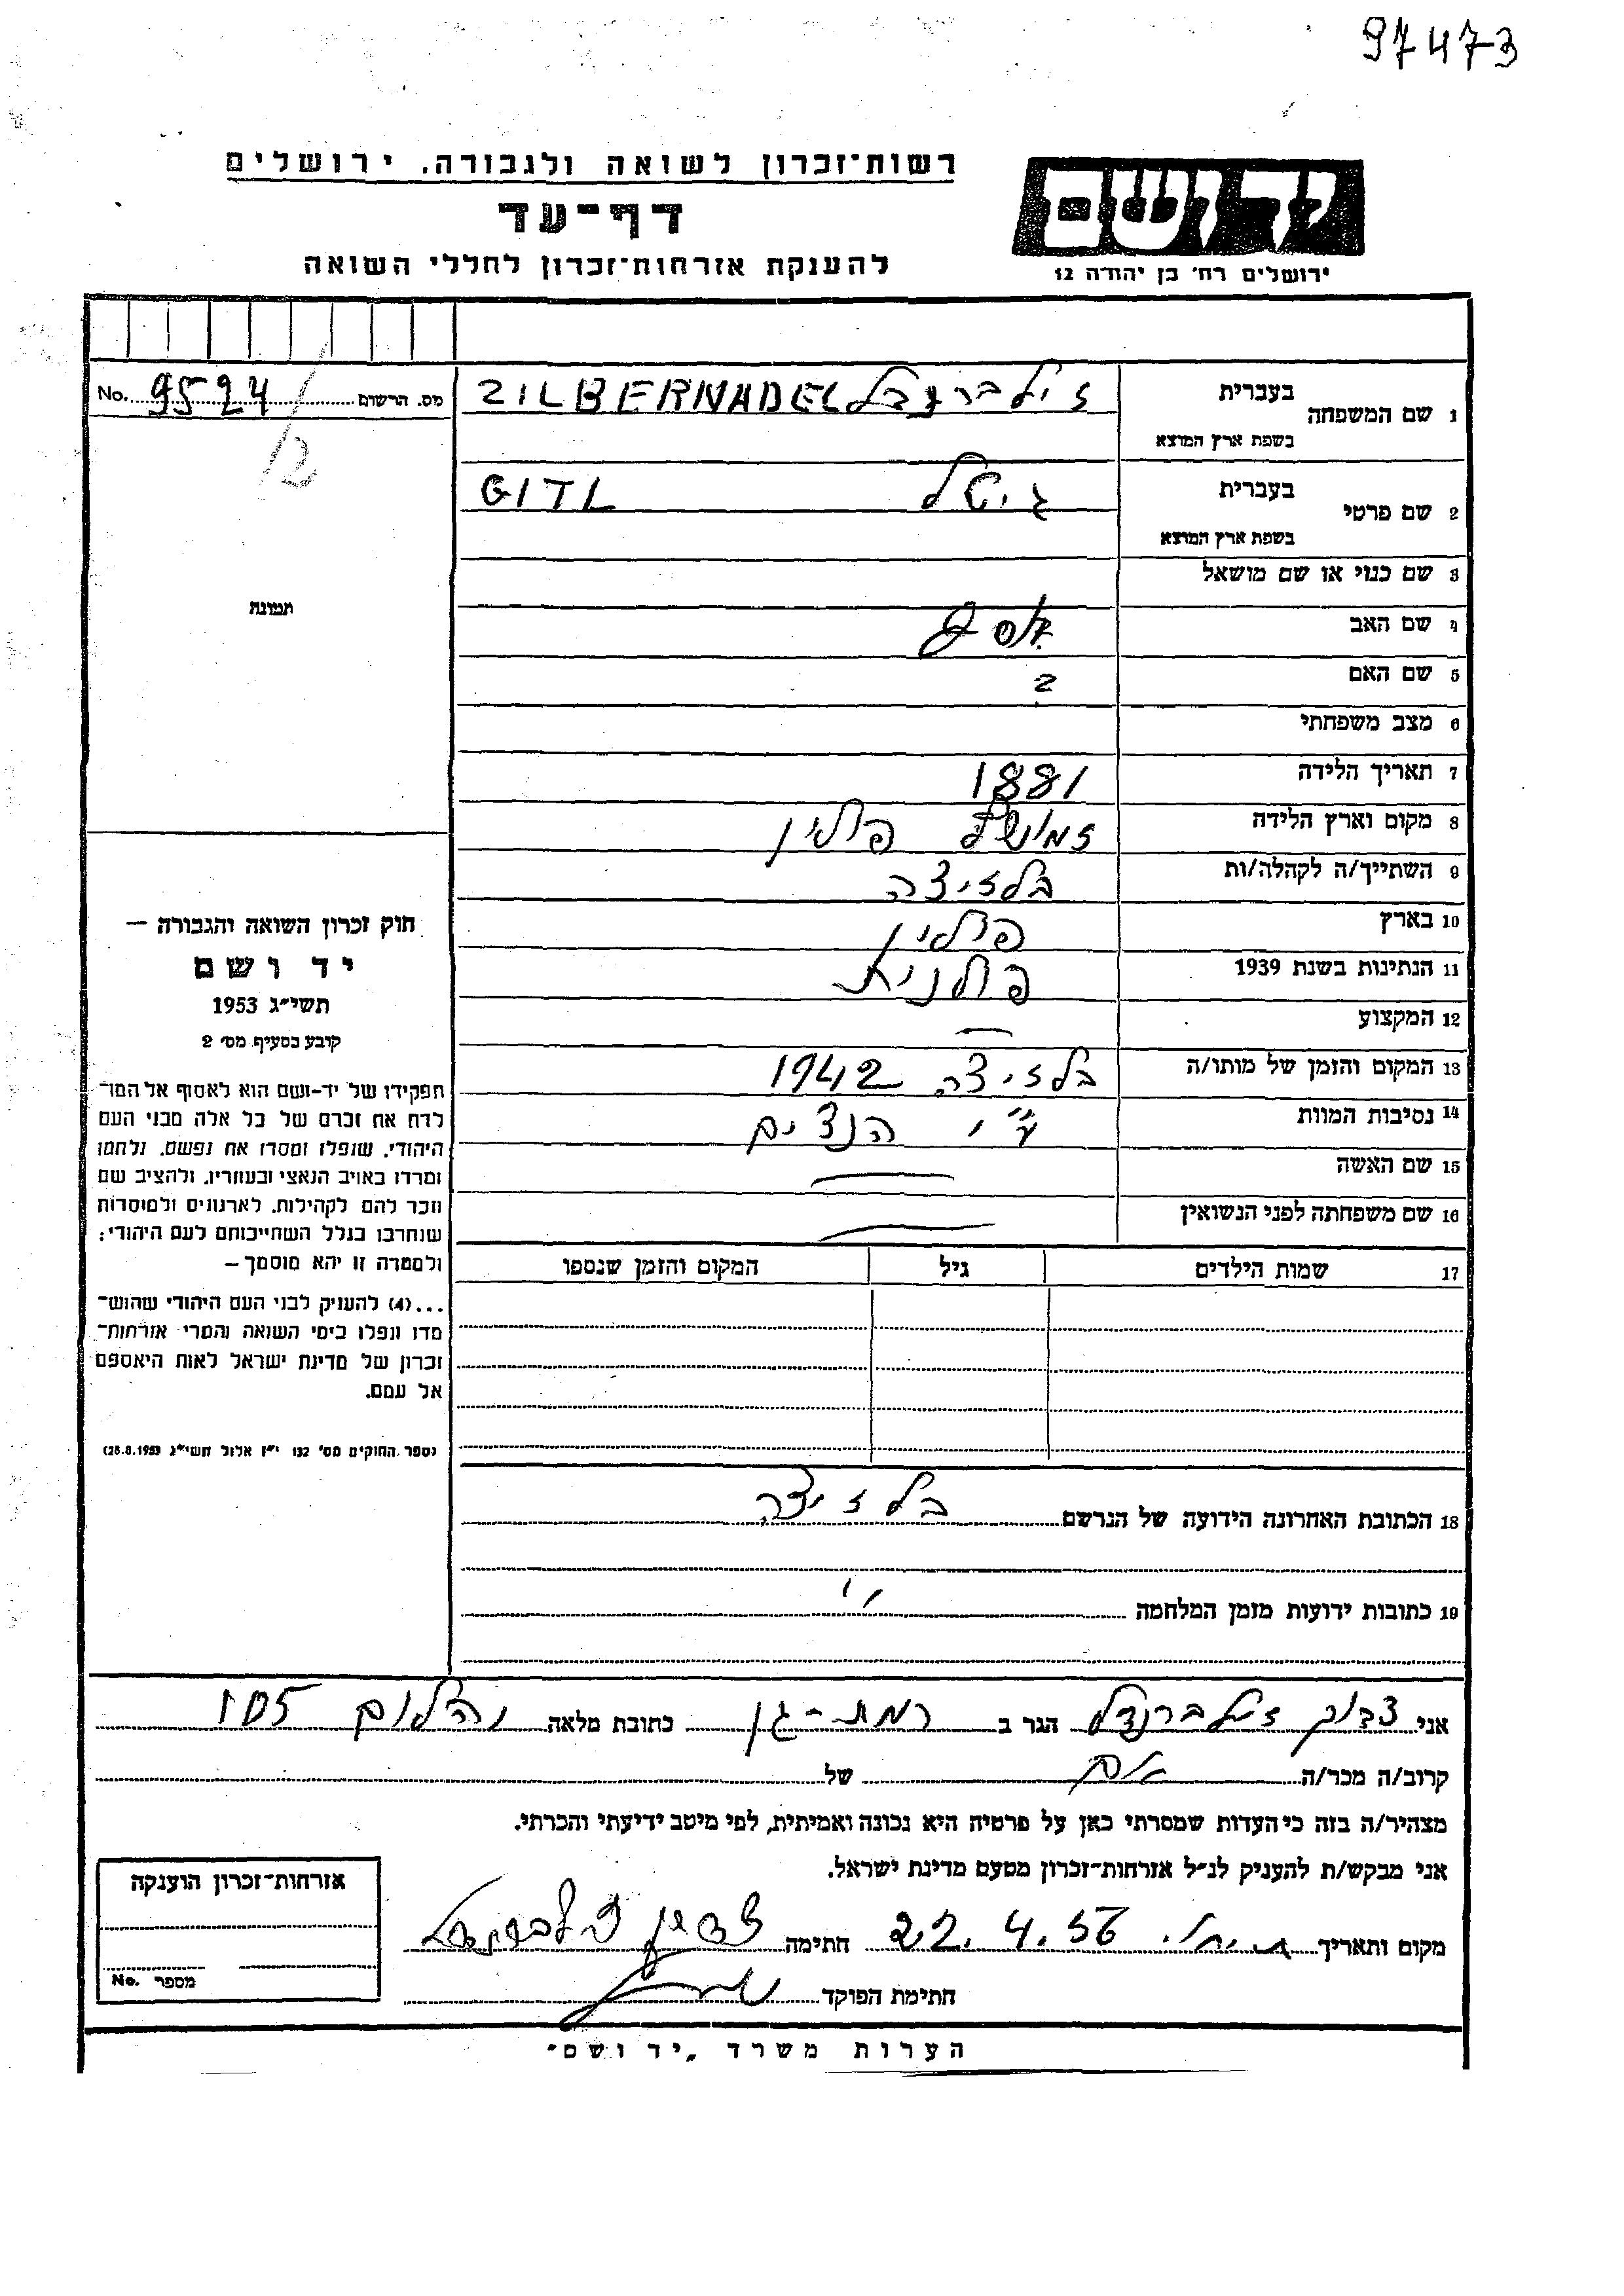 97473
רשות־זכרון לשואה ולגבורה, ירושלים
דף-עד
להענקת אזרחות־זכרון לחללי השואה
ידושם
ירושלים רח' בן יהודה 12
מס. הרשום 9524 No.
12
1 שם המשפחה בעברית זילברנדל ZILBERNADEL
בשפת ארץ המוצא
2 שם פרטי בעברית גיטל GITL
בשפת ארץ המוצא
3 שם כנוי או שם מושאל
4 שם האב
5 שם האם ?
6 מצב משפחתי
7 תאריך הלידה 1881
8 מקום וארץ הלידה פולין
9 השתייך/ה לקהלה/ות בלזיצה
10 בארץ פולין
11 הנתינות בשנת 1939 פולנית
12 המקצוע —
13 המקום והזמן של מותו/ה בלזיצה 1942
14 נסיבות המוות ע"י הנצים
15 שם האשה —
16 שם משפחתה לפני הנשואין —
17 שמות הילדים גיל המקום והזמן שנספו
18 הכתובת האחרונה הידועה של הנרשם בלזיצה
19 כתובות ידועות מזמן המלחמה "
תמונה
חוק זכרון השואה והגבורה —
יד ושם
תשי"ג 1953
קובע בסעיף מס' 2
תפקידו של יד-ושם הוא לאסוף אל המו־
לדת את זכרם של כל אלה מבני העם
היהודי, שנפלו ומסרו את נפשם, נלחמו
ומרדו באויב הנאצי ובעוזריו, ולהציב שם
וזכר להם לקהילות, לארגונים ולמוסדות
שנחרבו בגלל השתייכותם לעם היהודי;
ולמטרה זו יהא מוסמך —
...(4) להעניק לבני העם היהודי שהוש־
מדו ונפלו בימי השואה והמרי אזרחות־
זכרון של מדינת ישראל לאות היאספם
אל עמם.
(ספר החוקים מס' 132 י"ז אלול תשי"ג 28.8.1953)
אני צדוק זילברנדל הגר ב רמת-גן כתובת מלאה 105
קרוב/ה מכר/ה של
מצהיר/ה בזה כי העדות שמסרתי כאן על פרטיה היא נכונה ואמיתית, לפי מיטב ידיעתי והכרתי.
אני מבקש/ת להעניק לנ"ל אזרחות־זכרון מטעם מדינת ישראל.
מקום ותאריך 22.4.56 חתימה צדוק זילברנדל
חתימת הפוקד
אזרחות־זכרון הוענקה
מספר No.
הערות משרד „יד ושם"